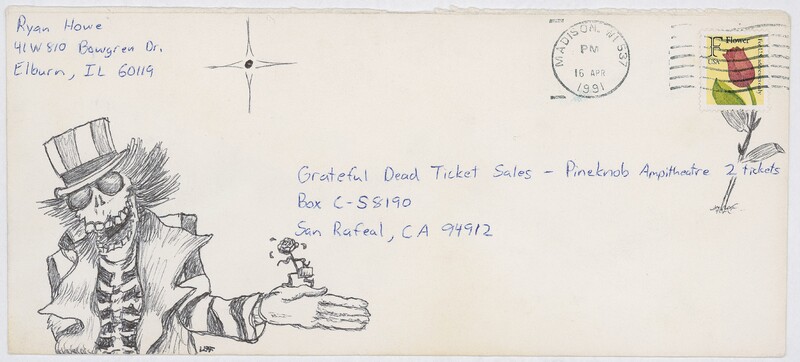 Ryan Howe
41W810 Bowgren Dr.
Elburn, IL 60119
MADISON, WI 537
PM
16 APR
1991
F Flower
USA
Grateful Dead Ticket Sales - Pineknob Ampitheatre 2 tickets
Box C-S8190
San Rafeal, CA 94912